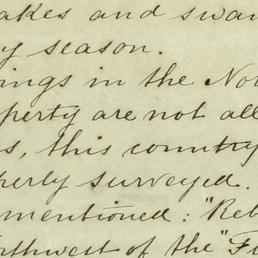 akes and swam
y season.
ings in the Nor
perty are not all
s, this country
perly surveyed.
mentioned: "Reb
rthwest of the "Fi